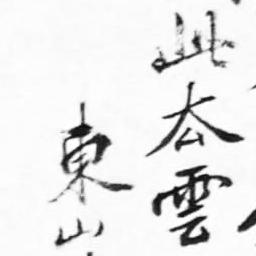 此太雲
東山